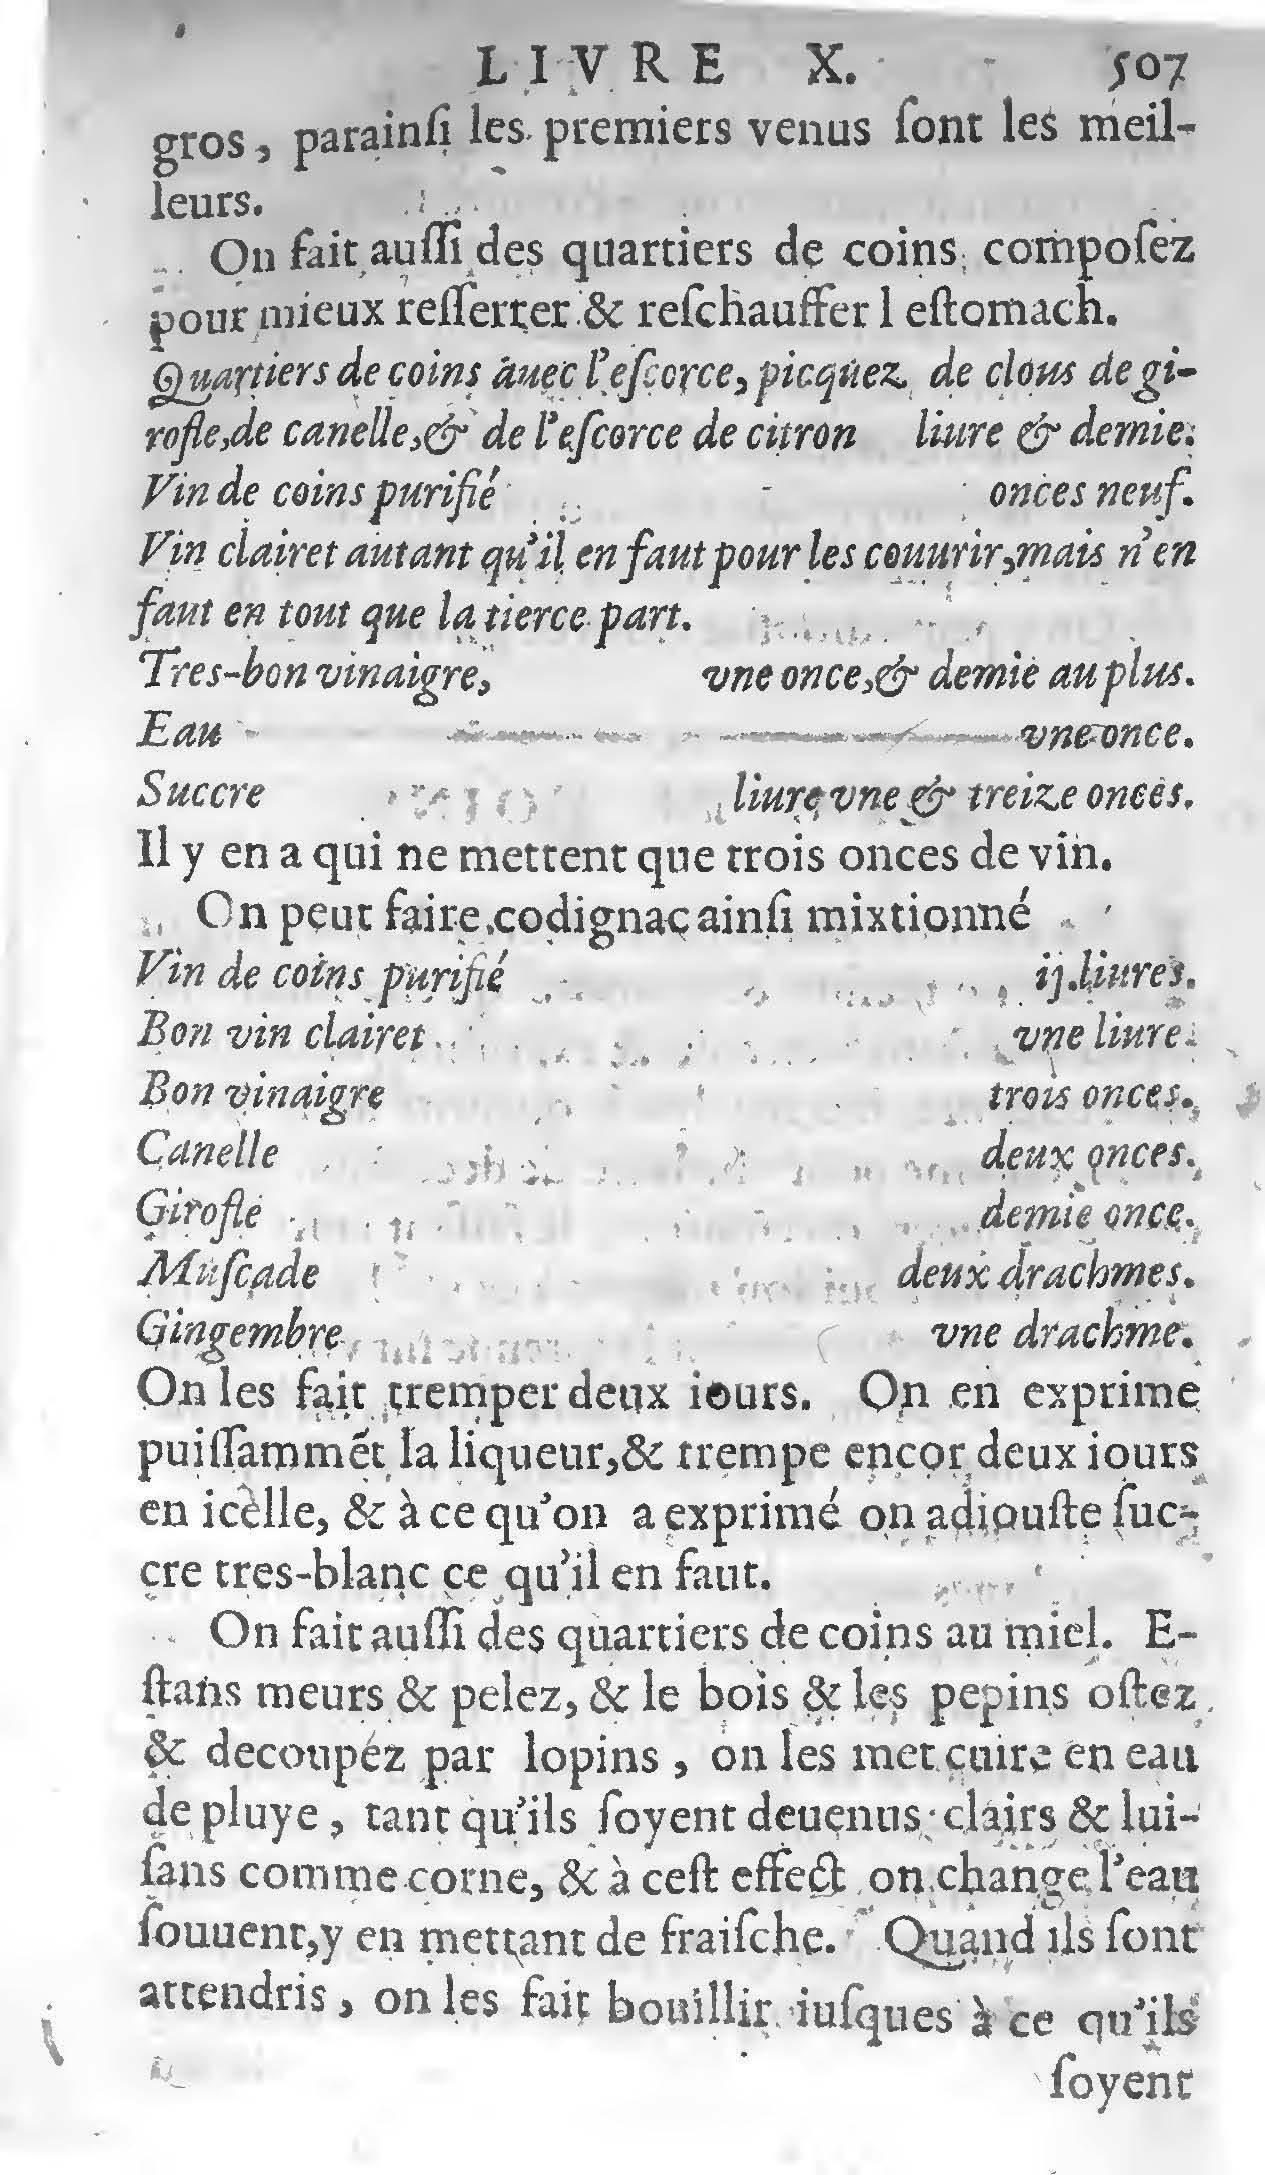 LIVRE X. 507
gros, parainſi les premiers venus ſont les meil-
leurs.
On fait auſſi des quartiers de coins compoſez
pour mieux reſſerrer & reſchauffer l eſtomach.
Quartiers de coins auec l'eſcorce, picquez de clous de gi-
rofle, de canelle, & de l'eſcorce de citron liure & demie.
Vin de coins purifié onces neuf.
Vin clairet autant qu'il en faut pour les couurir, mais n'en
faut en tout que la tierce part.
Tres-bon vinaigre, vne once, & demie au plus.
Eau vne once.
Succre liure vne & treize onces.
Il y en a qui ne mettent que trois onces de vin.
On peut faire codignac ainſi mixtionné
Vin de coins purifié ij. liures.
Bon vin clairet vne liure.
Bon vinaigre trois onces.
Canelle deux onces.
Girofle demie once.
Muſcade deux drachmes.
Gingembre vne drachme.
On les fait tremper deux iours. On en exprime
puiſſammẽt la liqueur, & trempe encor deux iours
en icelle, & à ce qu'on a exprimé on adiouſte ſuc-
cre tres-blanc ce qu'il en faut.
On fait auſſi des quartiers de coins au miel. E-
ſtans meurs & pelez, & le bois & les pepins oſtez
& decoupéz par lopins, on les met cuire en eau
de pluye, tant qu'ils ſoyent deuenus clairs & lui-
ſans comme corne, & à ceſt effect on change l'eau
ſouuent, y en mettant de fraiſche. Quand ils ſont
attendris, on les fait bouillir iuſques à ce qu'ils
ſoyent